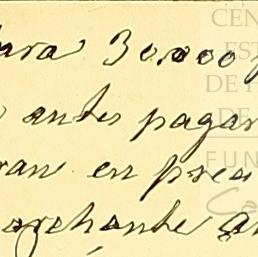 para 30.000
antes pagar
ran en prea
marchante an
CEN
EST
DE H
DE
FUN
Ca